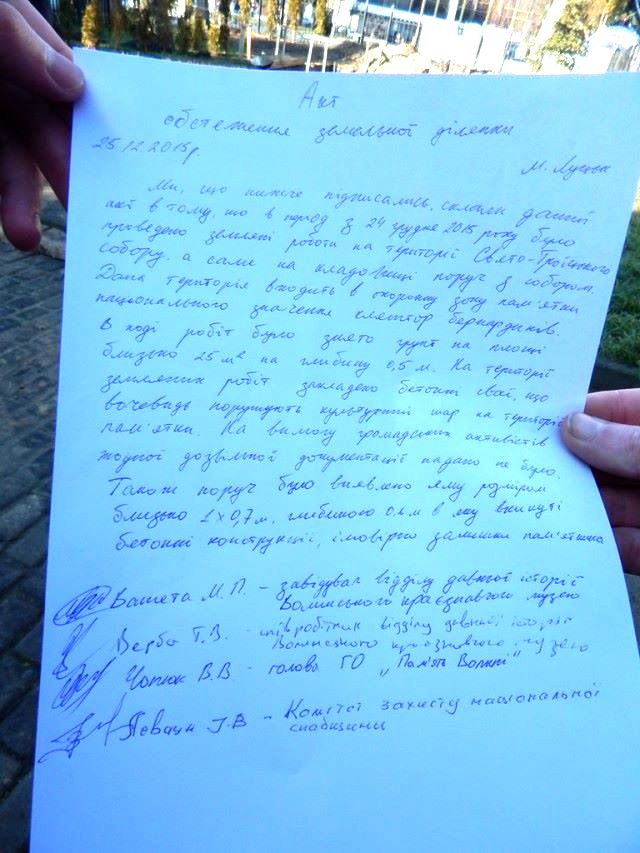 Акт
обстеження земельної ділянки
25.12.2015р.
м. Луцьк
Ми, що нижче підписались, склали даний
акт в тому, що в період з 24 грудня 2015 року було
проведено земляні роботи на території Свято-Троїцького
собору, а саме на кладовищі поруч з собором.
Дана територія входить в охоронну зону пам'ятки
національного значення кляштор бернардинів.
В ході робіт було знято грунт на площі
близько 25 м² на глибину 0,5 м. На території
земляних робіт закладено бетонні сваї, що
вочевидь порушують культурний шар на території
пам'ятки. На вимогу громадських активістів
жодної дозвільної документації надано не було.
Також поруч було виявлено яму розміром
близько 1 х 0,7 м. глибиною м в яку вкинуті
бетонні конструкції, імовірно залишки пам'ятника
М.П. – завідувач відділу давньої історії
Волинського краєзнавчого музею
Верба Т.В. – співробітник відділу давньої історії
Волинського краєзнавчого музею
Чопюк В.В – голова ГО „Пам'ять Волині"
І.В – Комітет захисту національної
спадщини